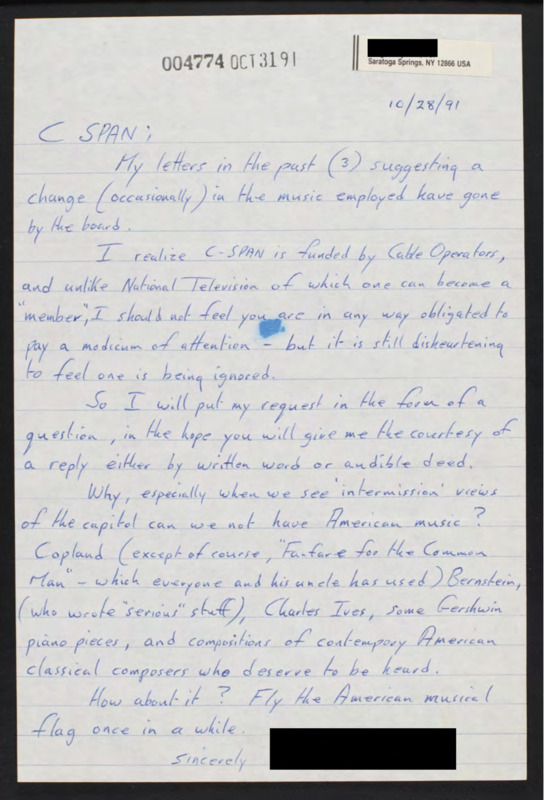 004774 OCT 31 91
Saratoga Springs, NY 12866 USA
10/28/91
C SPAN;
My letters in the past (3) suggesting a
change (occasionally) in the music employed have gone
by the board.
I realize C-SPAN is funded by Cable Operators,
and unlike National Television of which one can become a
"member", I should not feel you are in any way obligated to
pay a modicum of attention - but it is still disheartening
to feel one is being ignored.
So I will put my request in the form of a
question, in the hope you will give me the courtesy of
a reply either by written word or audible deed.
Why, especially when we see 'intermission' views
of the capitol can we not have American music?
Copland (except of course, "Fanfare for the Common
Man" - which everyone and his uncle has used) Bernstein,
(who wrote "serious" stuff), Charles Ives, some Gershwin
piano pieces, and compositions of contempory American
classical composers who deserve to be heard.
How about it? Fly the American musical
flag once in a while.
Sincerely